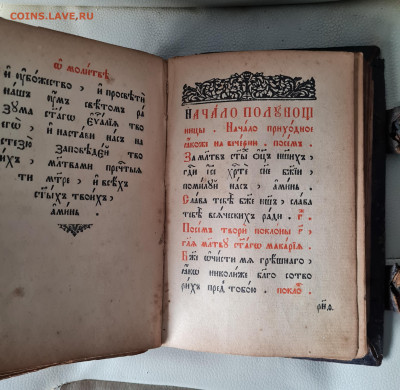 COINS.LAVE.RU
ѿ молитвѣ
и҆ ᲂу҆божество, и҆ просвѣти
нашъ ᲂу҆мъ свѣтомъ ра
зꙋма ст҃а́гѡ є҆ѵⷢ҇лїѧ тво
егѡ̀, и҆ настави насъ на
стезю̀ заповѣдей тво
ихъ, мл҃твами пречⷭ҇тыѧ
ти мт҃ри, и҆ всѣхъ
ст҃ы́хъ твои́хъ,
а҆ми́нь.
НАЧА́ЛО ПОЛꙊНОЩ
ницы. Нача́ло приходное
ꙗ҆коже на вечерни. посемъ.
За мл҃твъ ст҃ы́хъ ѻ҆ц҃ъ нашихъ,
гдⷭ҇и і҆с х҃ртѐ сн҃е бж҃їи
поми́лꙋй насъ, а҆ми́нь.
Слава тебѣ бж҃е нашъ, слава
тебѣ всѧческихъ ради. г҃.
Посемъ твори поклоны г҃,
гл҃ѧ мл҃твꙋ ст҃а́гѡ макарїѧ.
Бж҃е ѡ҆чисти мѧ грѣшнаго,
ꙗ҆кѡ николиже бл҃го сотво
рихъ пред̾ тобою. покло́ⷩ.